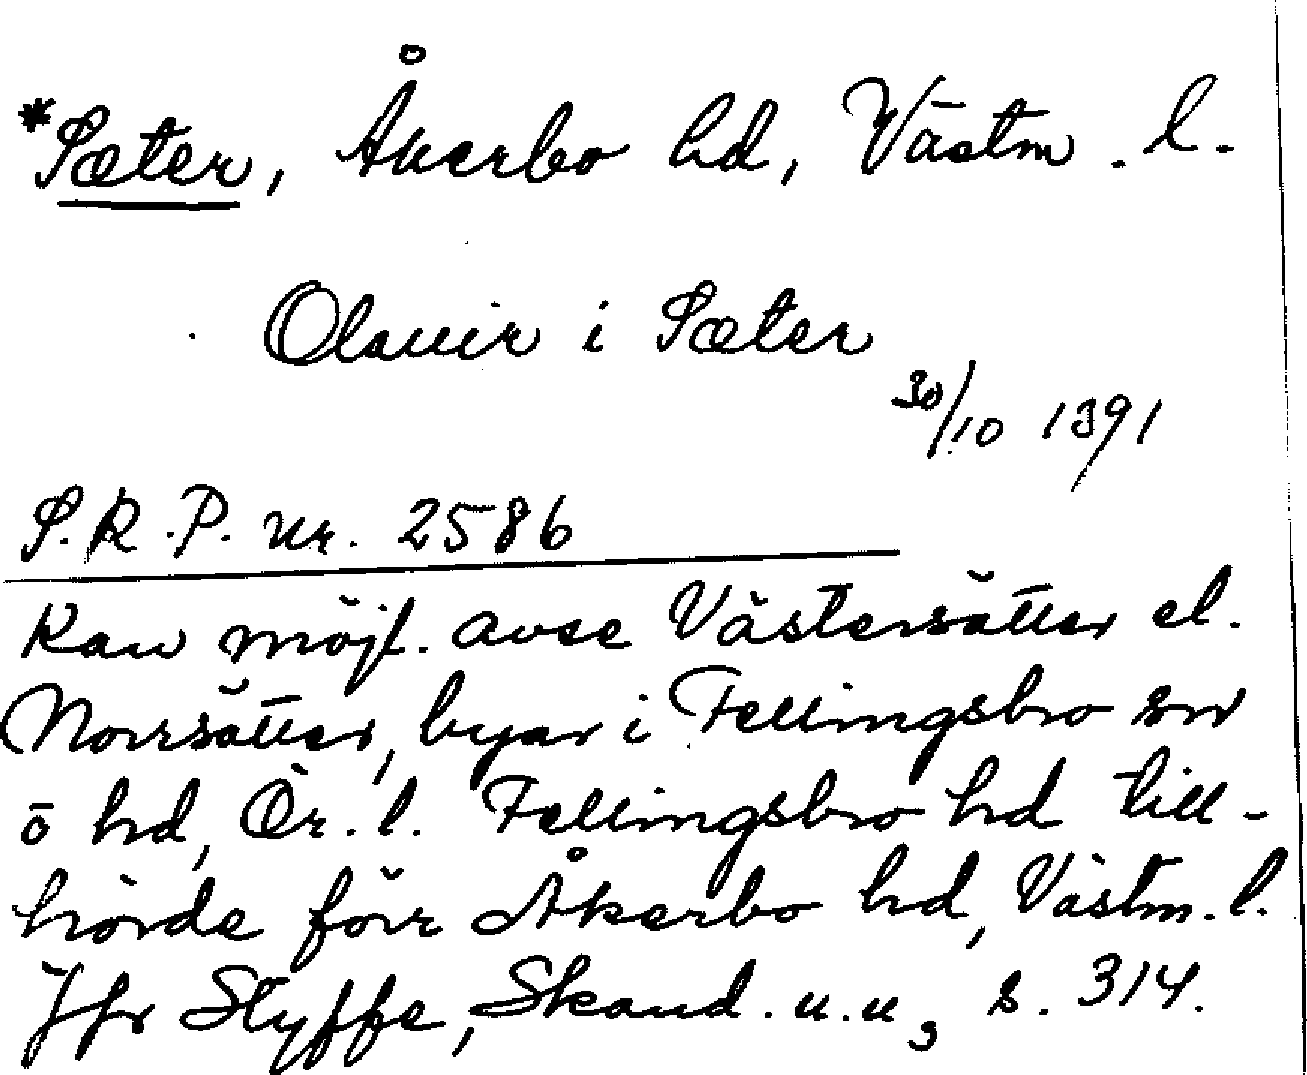 *Sæter, Åkerbo hd, Västm. l.
Olauir i Sæter
30/10 1391
S.R.P. nr. 2586
Kan möjl. avse Västersätter el.
Norrsätter, byar i Fellingsbro sn
o hd, Ör. l. Fellingsbro hd till-
hörde förr Åkerbo hd, Västm. l.
Jfr Styffe, Skand. u.u, s. 314.